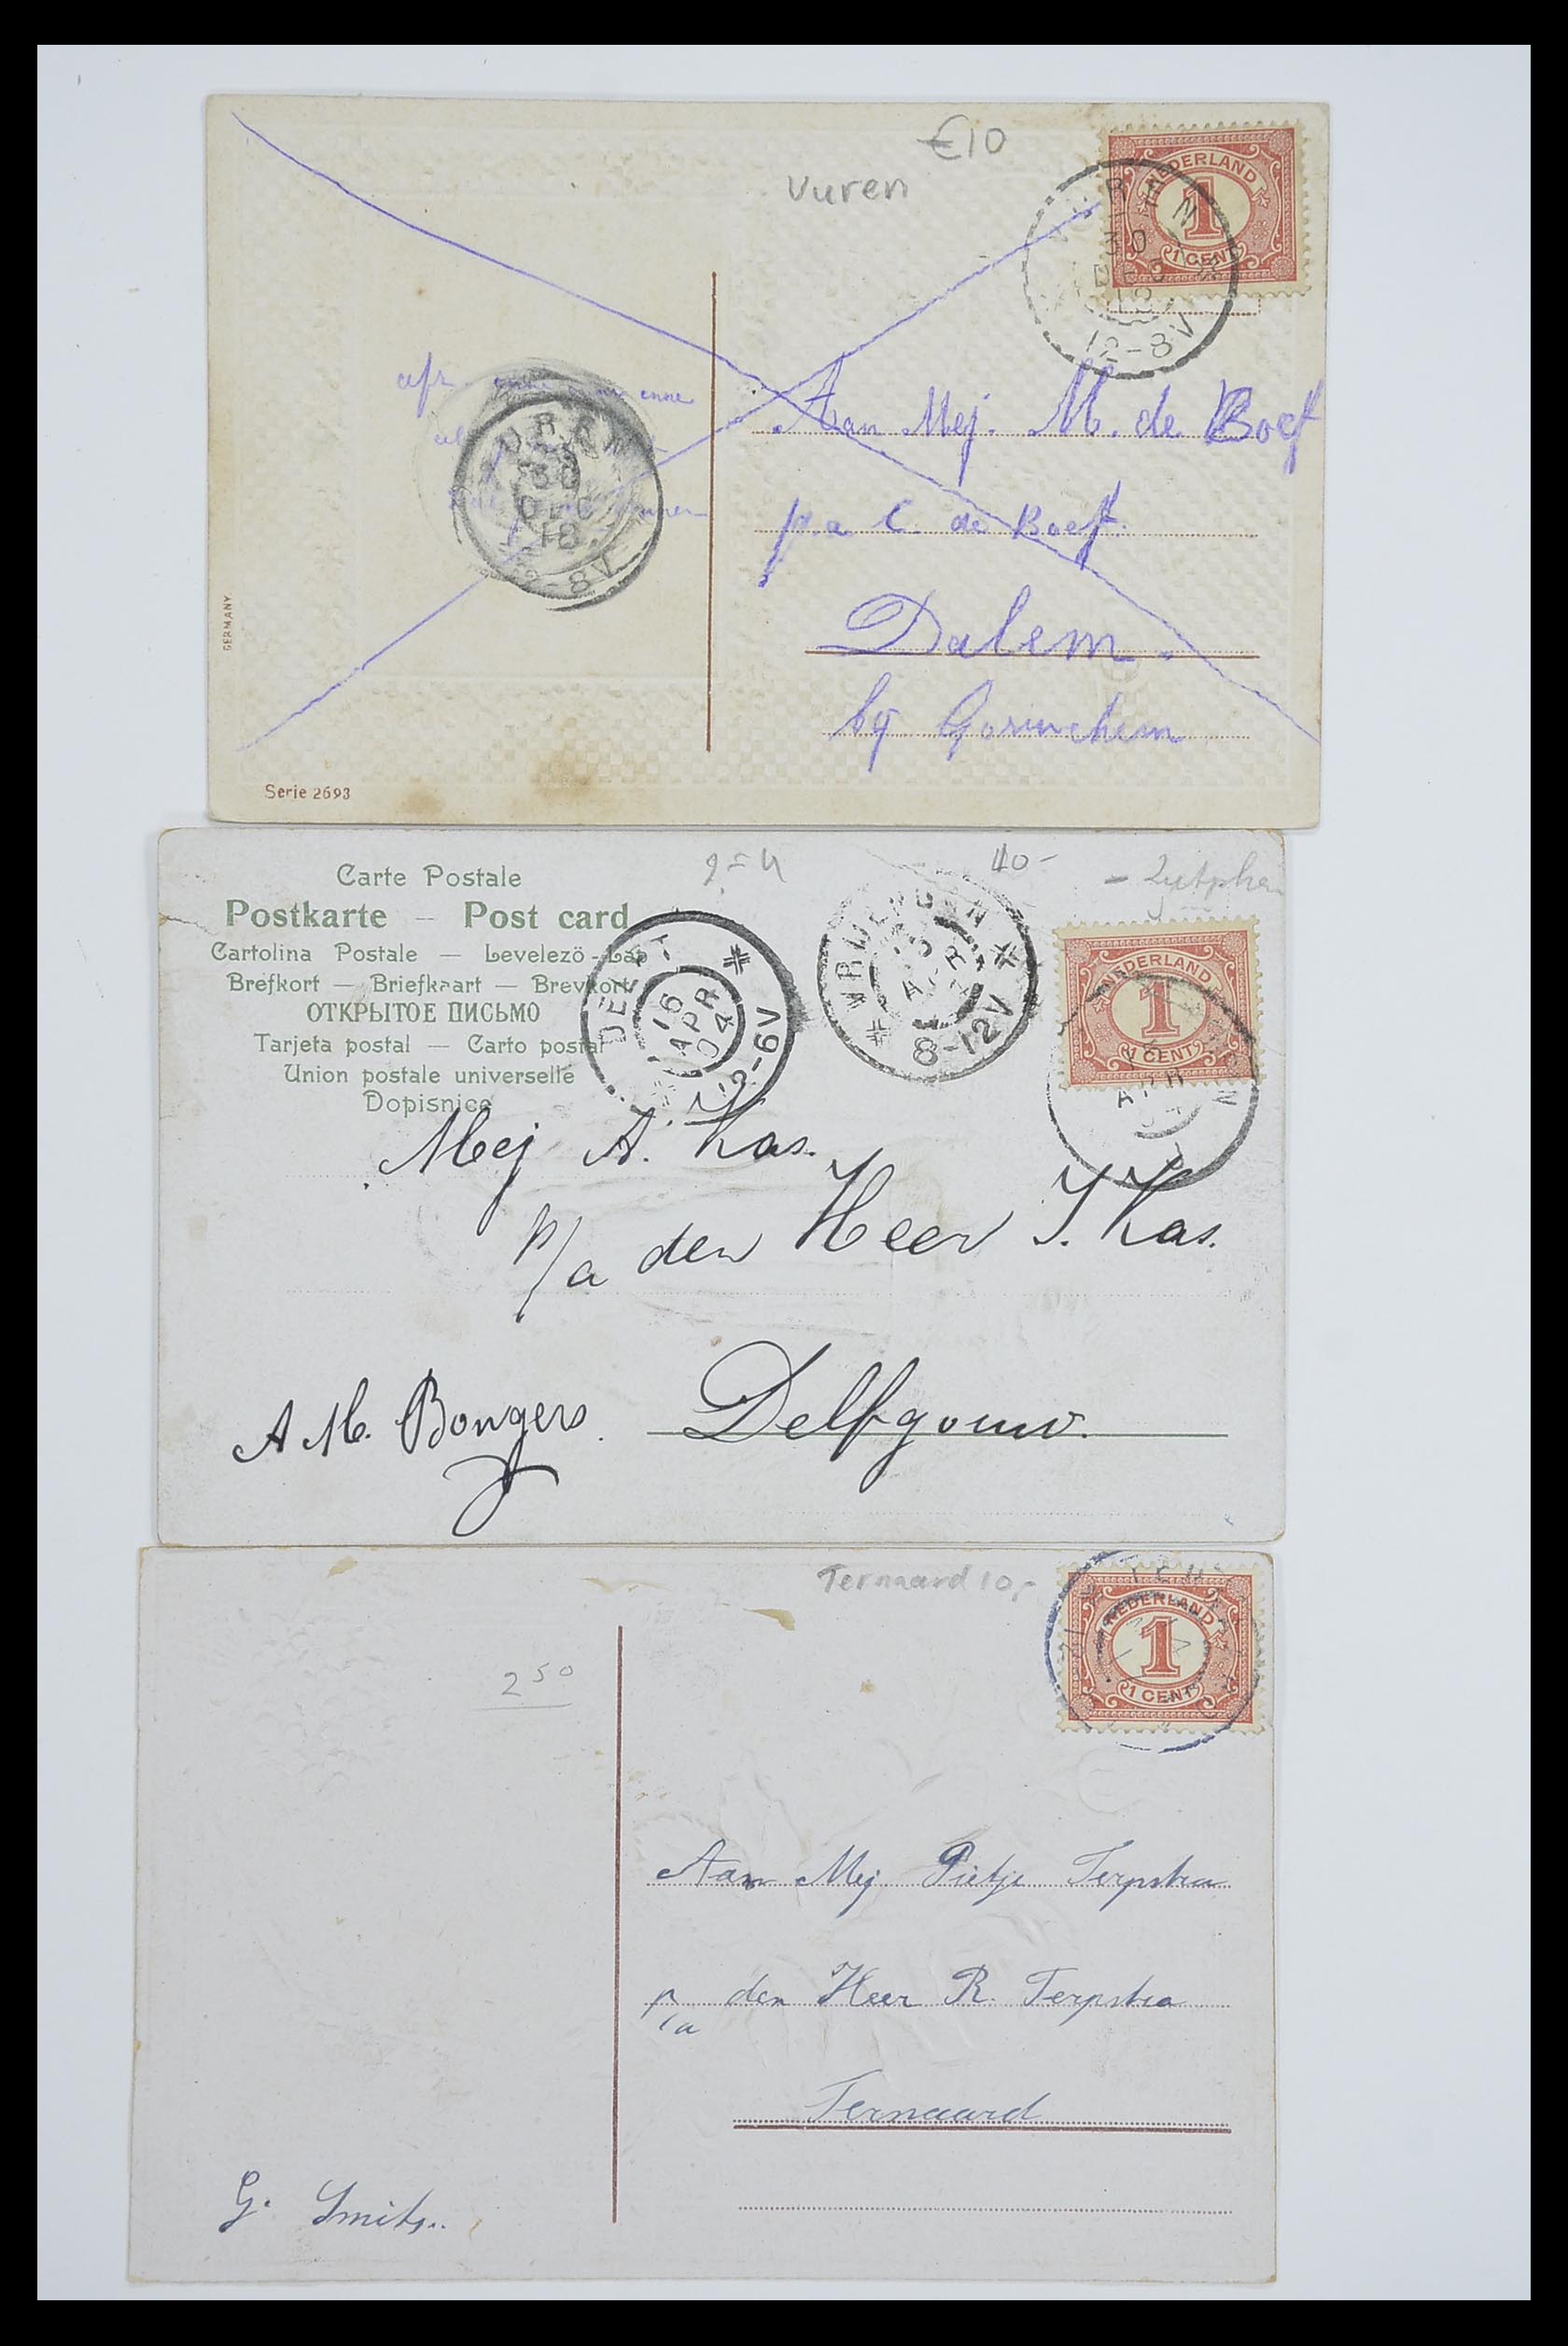 €10
Vuren
NEDERLAND
1
1 CENT
VUREN
30
DEC
18
12-8V
Aan Mej. M. de Boef
p.a C. de Boef.
Dalem.
bij Gorinchem
VUREN
30
DEC
18
12-8V
GERMANY
Serie 2693
Carte Postale
Postkarte — Post card
Cartolina Postale — Levelezö-Lap
Brefkort — Briefkaart — Brevkort
ОТКРЫТОЕ ПИСЬМО
Tarjeta postal — Carto postal
Union postale universelle
Dopisnice
40-
- Zutphen
DELFT
16
APR
04
12-6V
APR
8-12V
NEDERLAND
1
1 CENT
APR
Mej A. Kas.
p/a den Heer J. Kas.
A M. Bongers.
Delfgouw.
Ternaard 10,-
2 50
NEDERLAND
1
1 CENT
Aan Mej Pietje Terpstra
p/a den Heer R. Terpstra
Ternaard
G. Smits.